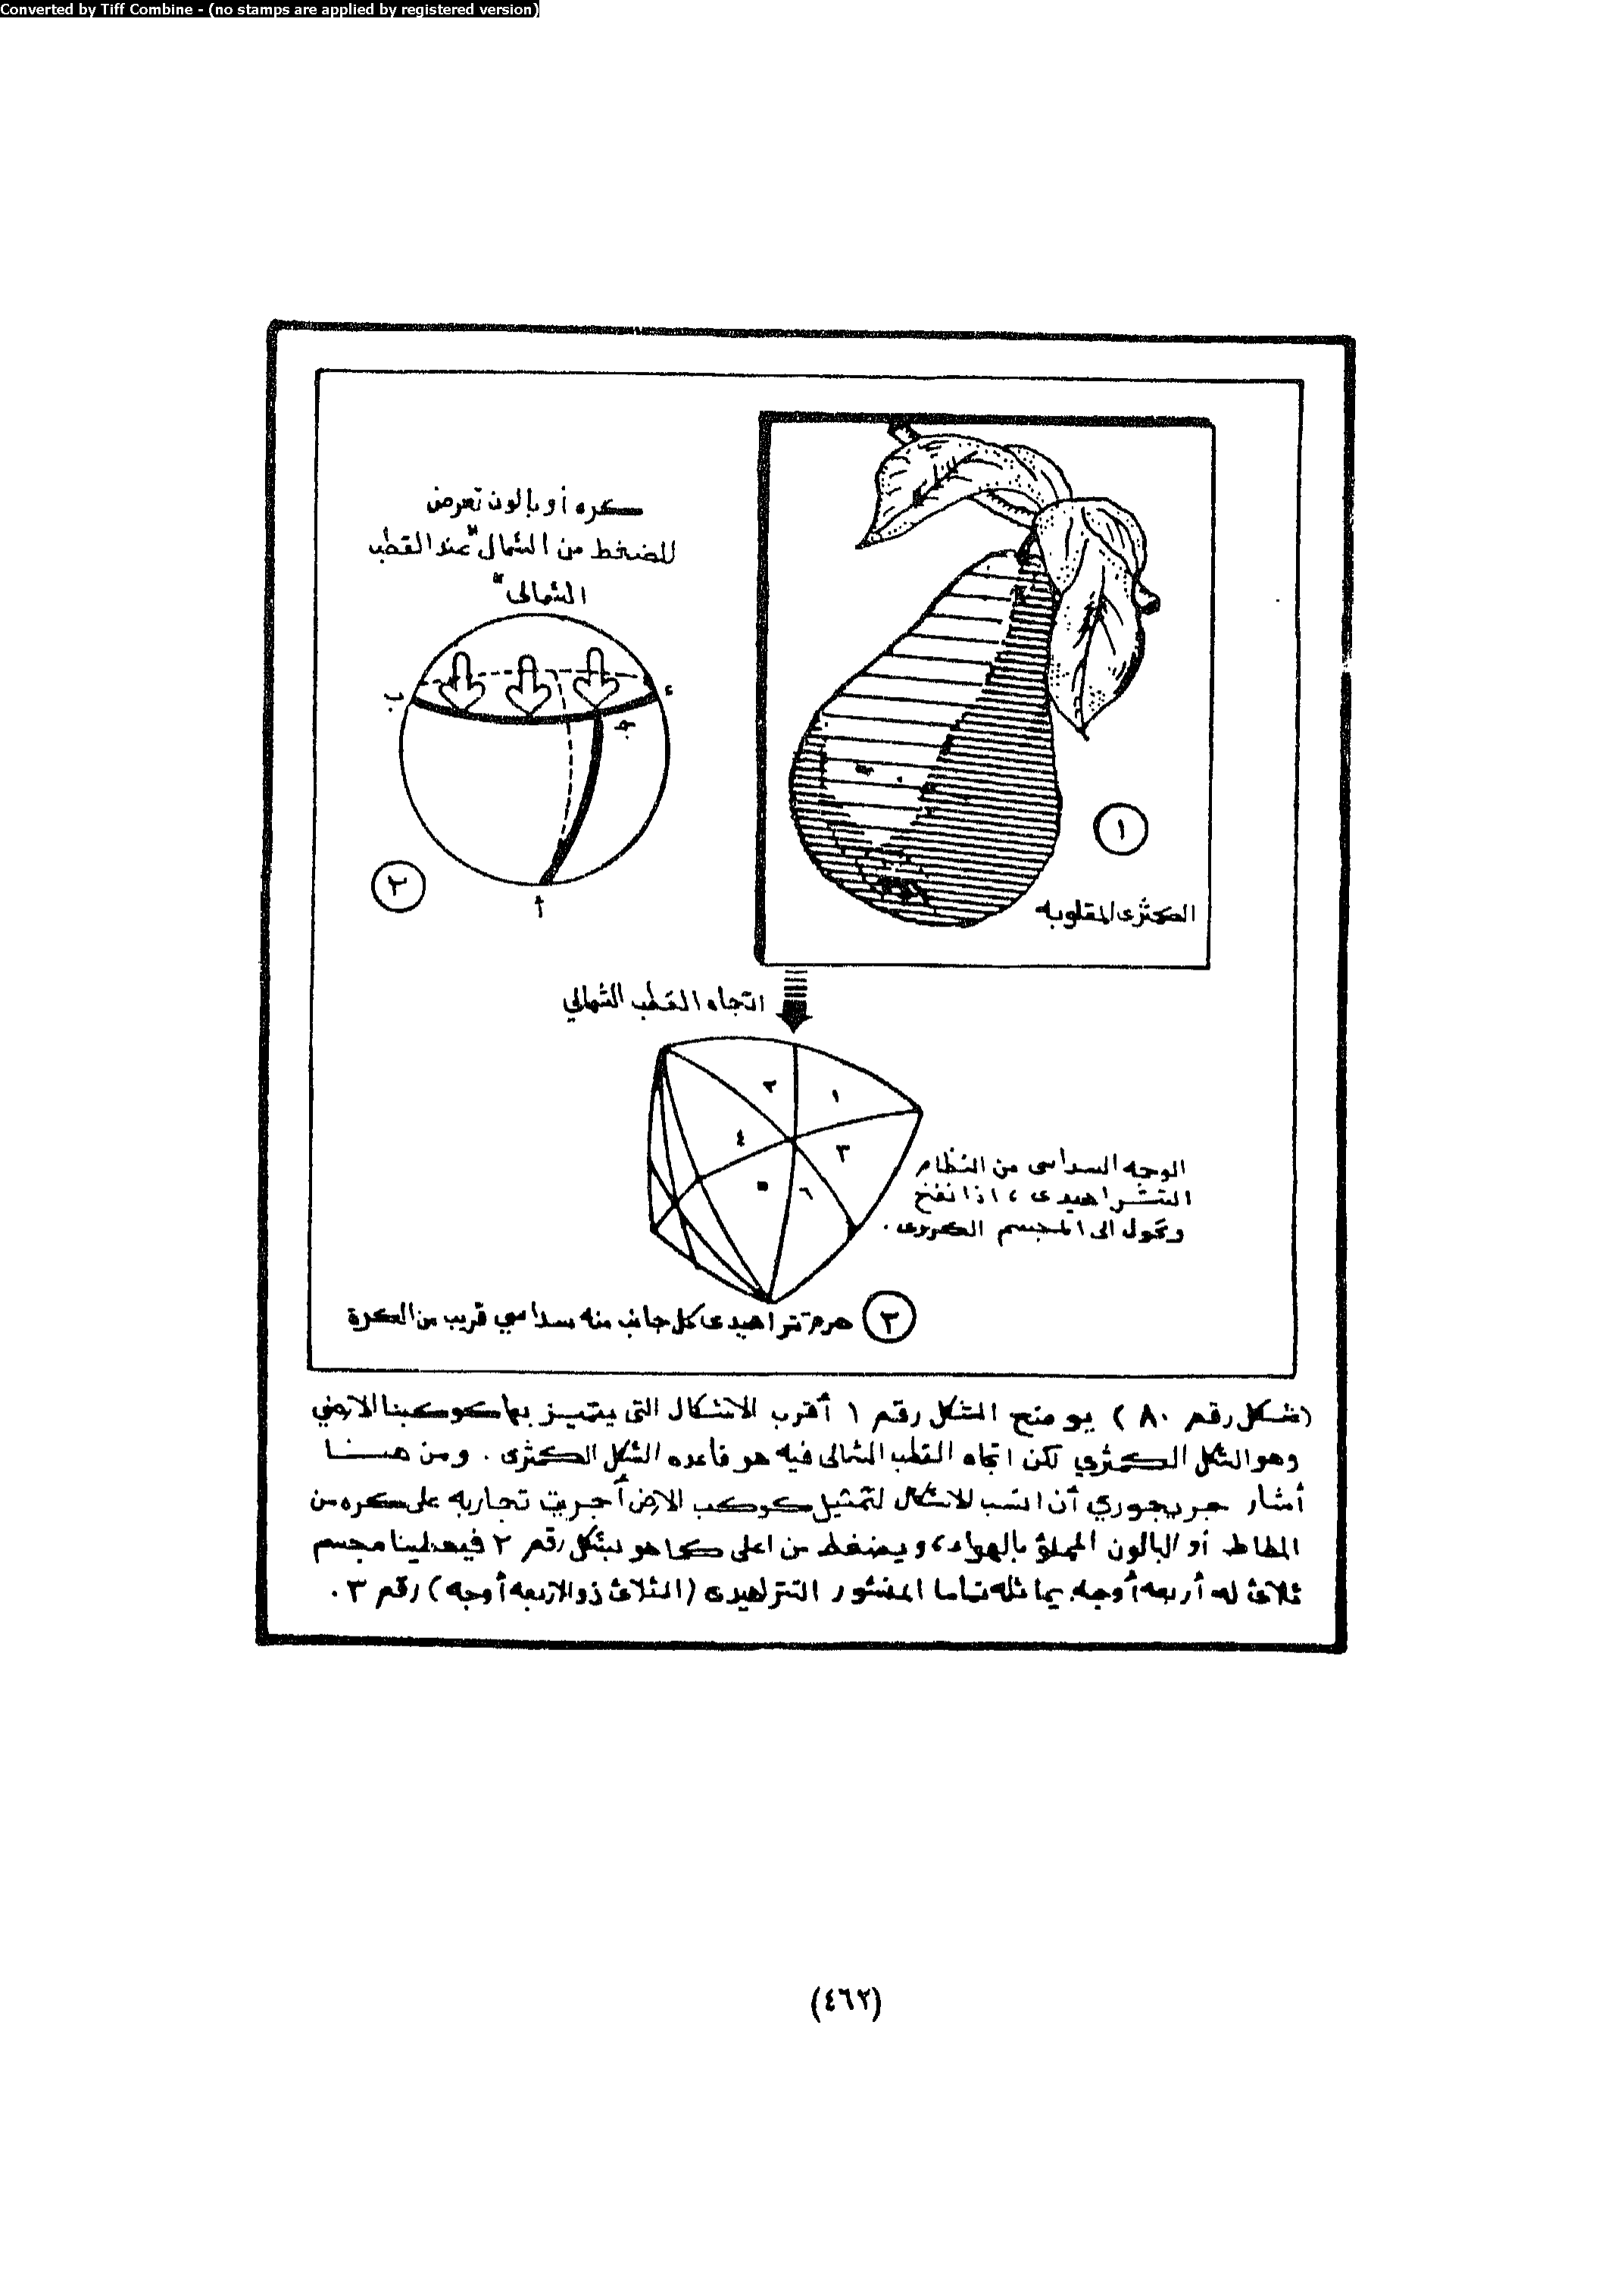 Converted by Tiff Combine - (no stamps are applied by registered version)
كره أو بالون تعرض
للضغط من الشمال "عند القطب
الشمالى"
ب
ء
جـ
أ
٢
١
الكمثرى المقلوبه
اتجاه القطب الشمالي
٢
١
٤
٣
٥
٦
الوجه السداسى من النظام
التتراهيدى ، اذا نفخ
وتحول الى المجسم الكروى .
٣
هرم تتراهيدى كل جانب منه سداسي قريب من الكرة
(شكل رقم ٨٠ ) يوضح الشكل رقم ١ أقرب الاشكال التى يتميز بها كوكبنا الارضي
وهو الشكل الكمثري لكن اتجاه القطب الشمالى فيه هو قاعده الشكل الكمثرى . ومن هنا
أشار جريجوري أن انسب للاشكال لتمثيل كوكب الارض أجريت تجاربه على كره من
المطاط أو البالون المملوء بالهواء ، ويضغط من اعلى كما هو بشكل رقم ٢ فيعطينا مجسم
ثلاثى له أربعه أوجه يماثله تماما المنشور التتراهيدى (الثلاثى ذو الاربعه أوجه ) رقم ٣ .
(٤٦٢)